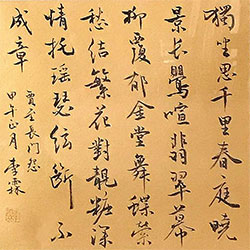 獨坐思千里春庭曉
景長鶯喧翡翠幕
柳覆郁金堂舞蝶縈
愁結繁花對靚粧深
情托瑶瑟絃断不
成章
賈至長門怨
甲午正月李霖